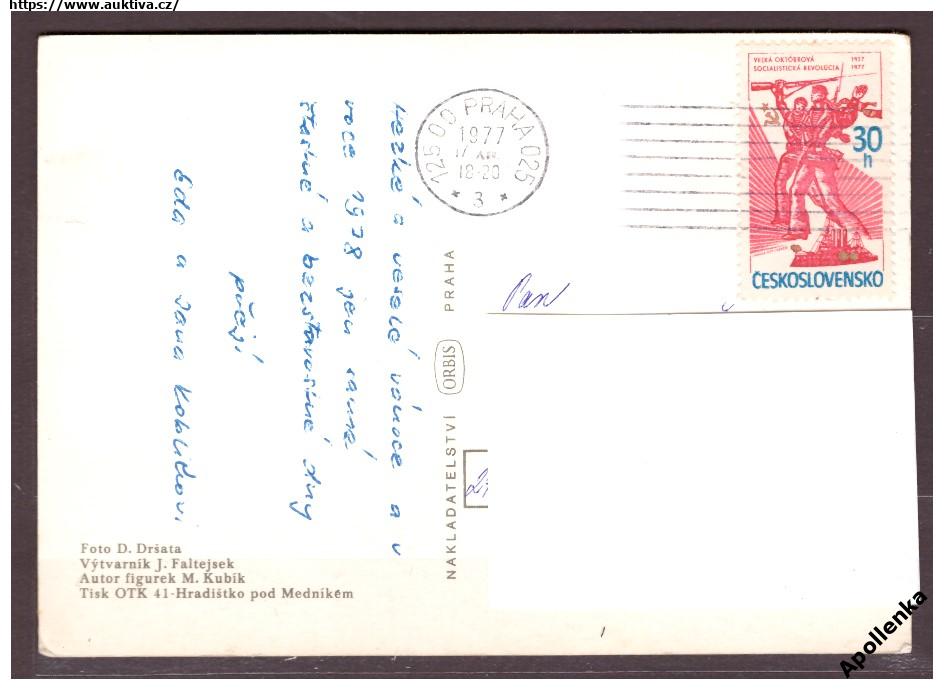 https://www.auktiva.cz/
VEĽKÁ OKTÓBROVÁ
SOCIALISTICKÁ REVOLÚCIA
1917
1977
30
h
ČESKOSLOVENSKO
125 00 PRAHA 025
1977
17
18-20
* 3 *
Hezké a veselé vánoce a v
roce 1978 jen samé
šťastné a bezstarostné dny
přejí
Eda a Jana
Pan
NAKLADATELSTVÍ ORBIS PRAHA
Foto D. Dršata
Výtvarník J. Faltejsek
Autor figurek M. Kubík
Tisk OTK 41-Hradištko pod Medníkem
Apollenka